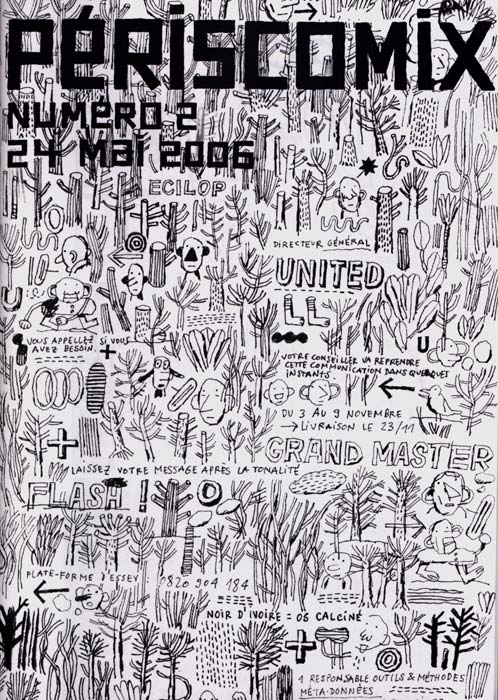 PÉRISCOMIX
NUMÉRO 2
24 MAI 2006
ECILOP
DIRECTEUR GÉNÉRAL
UNITED
LL
U
VOUS APPELLEZ SI VOUS
AVEZ BESOIN.
U
VOTRE CONSEILLER VA REPRENDRE
CETTE COMMUNICATION DANS QUELQUES
INSTANTS
DU 3 AU 9 NOVEMBRE
→ LIVRAISON LE 23/11
GRAND MASTER
LAISSEZ VOTRE MESSAGE APRÈS LA TONALITÉ
FLASH !
PLATE-FORME D'ESSEY : 0820 904 184
NOIR D'IVOIRE = OS CALCINÉ
1 RESPONSABLE OUTILS & MÉTHODES
MÉTA-DONNÉES